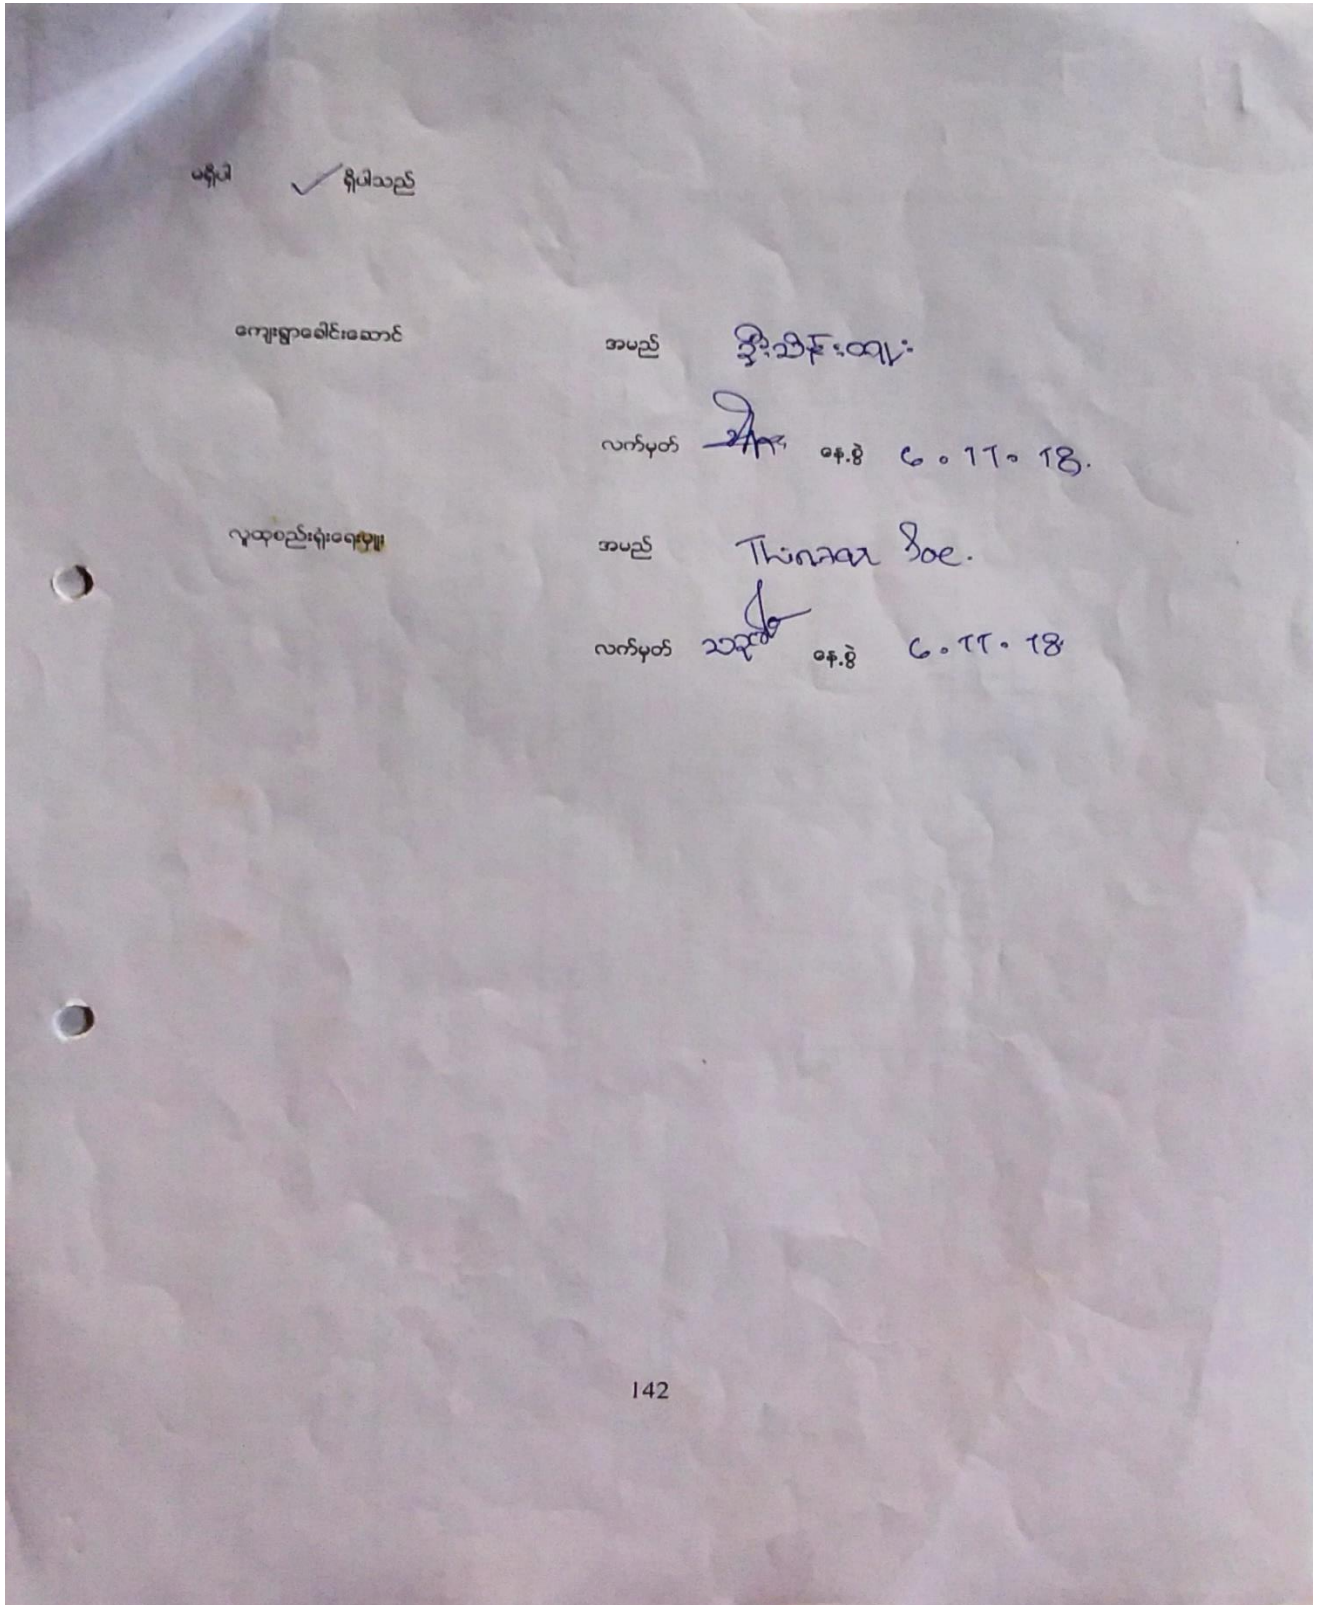 မရှိပါ ✓ ရှိပါသည်
ကျေးရွာခေါင်းဆောင် အမည် ဦးသိန်းထူး
လက်မှတ် နေ့စွဲ 6.11.18.
လူထုစည်းရုံးရေးမှူး အမည် Thinzar Soe.
လက်မှတ် နေ့စွဲ 6.11.18
142